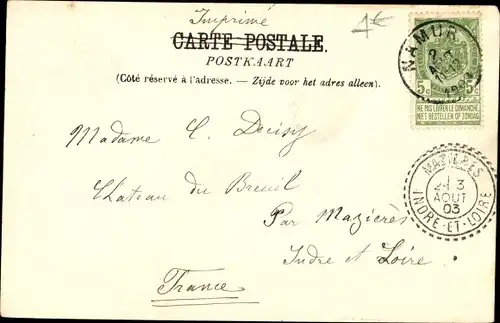 Imprimé
1€
CARTE POSTALE.
POSTKAART
(Côté réservé à l'adresse. — Zijde voor het adres alleen).
NAMUR
5c 5c
NE PAS LIVRER LE DIMANCHE
NIET BESTELLEN OP ZONDAG
Madame C.
Chateau du Breuil
Par Mazières
Indre et Loire.
France
MAZIÈRES
3
AOUT
03
INDRE-ET-LOIRE